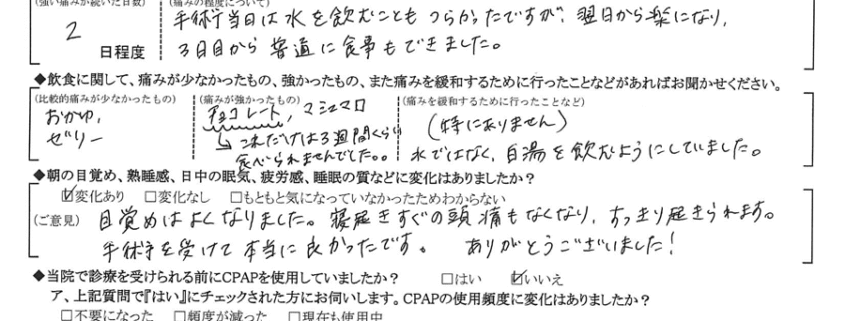 (強い痛みが続いた日数) (痛みの程度について)
2 日程度
手術当日は水を飲むこともつらかったですが、翌日から楽になり、
3日目から普通に食事もできました。
◆飲食に関して、痛みが少なかったもの、強かったもの、また痛みを緩和するために行ったことなどがあればお聞かせください。
(比較的痛みが少なかったもの) (痛みが強かったもの) (痛みを緩和するために行ったことなど)
おかゆ、
ゼリー
チョコレート、マシュマロ
↳これだけは3週間くらい
食べられませんでした。。
(特にありません)
水ではなく、白湯を飲むようにしていました。
◆朝の目覚め、熟睡感、日中の眠気、疲労感、睡眠の質などに変化はありましたか?
☑変化あり □変化なし □もともと気になっていなかったためわからない
(ご意見) 目覚めはよくなりました。寝起きすぐの頭痛もなくなり、すっきり起きられます。
手術を受けて本当に良かったです。 ありがとうございました!
◆当院で診療を受けられる前にCPAPを使用していましたか? □はい ☑いいえ
ア、上記質問で『はい』にチェックされた方にお伺いします。CPAPの使用頻度に変化はありましたか?
□不要になった □頻度が減った □現在も使用中